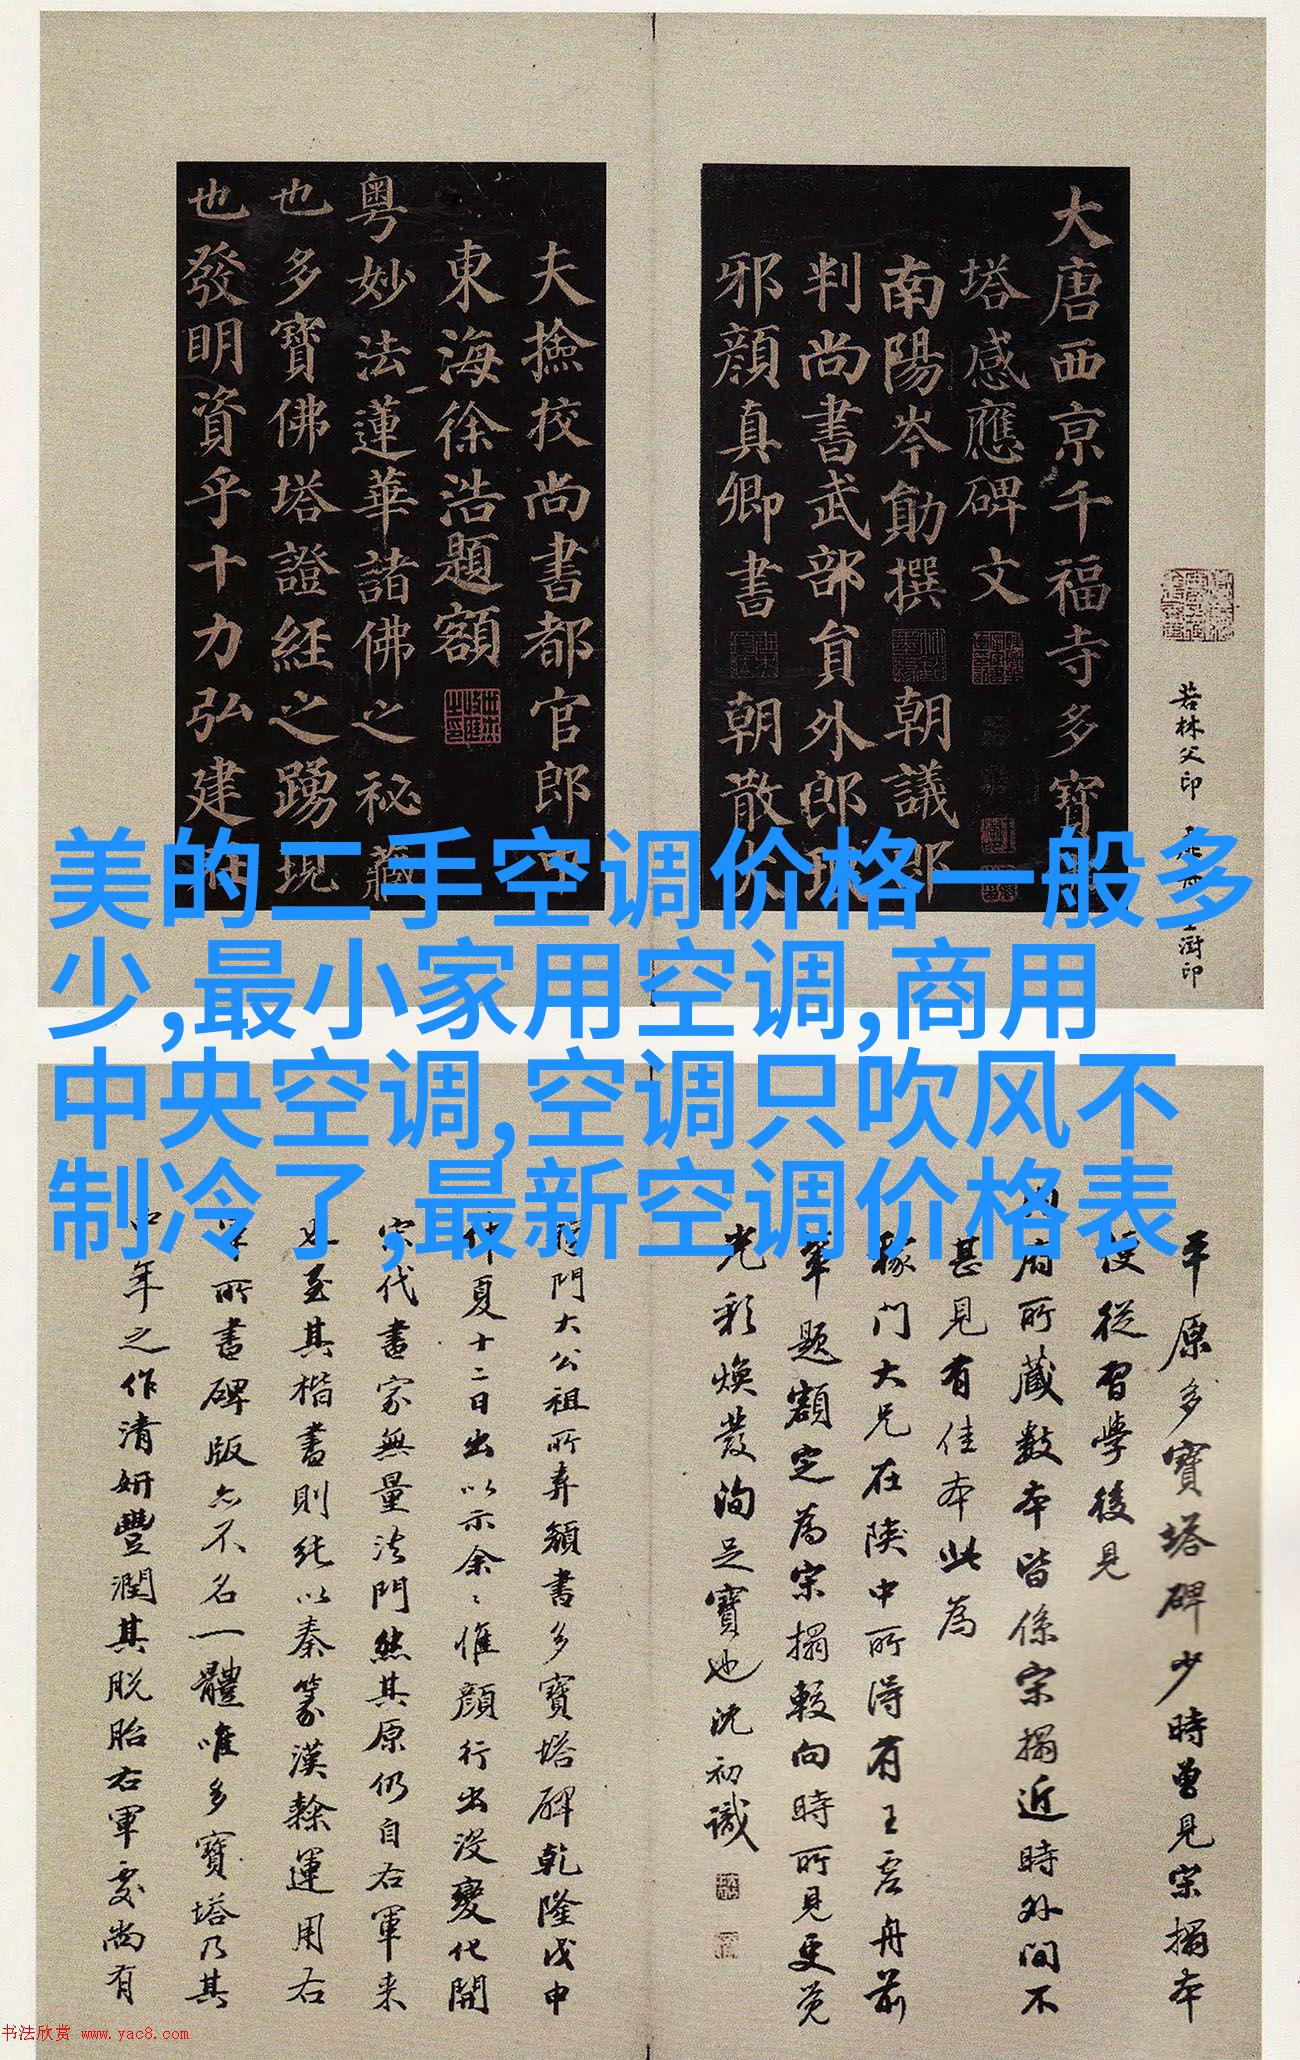 大唐西京千福寺多寶
塔感應碑文
南陽岑勛撰 朝議郎
判尚書武部員外郎琅
邪顏真卿書 朝散大
夫撿挍尚書都官郎中
東海徐浩題額
粵妙法蓮華諸佛之祕藏
也多寶佛塔證經之踴現
也發明資乎十力弘建
若林父印
澍印
美的二手空调价格一般多
少,最小家用空调,商用
中央空调,空调只吹风不
制冷了,最新空调价格表
平原多寶塔碑少時曾見宋搨本
便從習學後見
府所藏數本皆係宋搨近時外間不
甚見有佳本此為
稼門大兄在陝中所得有王虛舟前
輩題額定為宋搨較向時所見更覺
光彩煥發洵足寶也沈初識
稼門大公祖所弆顏書多寶塔碑乾隆戊申
仲夏十二日出以示余惟顏行出沒變化開
宋代書家無量法門然其原仍自右軍来
也至其楷書則純以秦篆漢隸運用右
軍所書碑版亦不名一體唯多寶塔乃其
中年之作清妍豐潤其脫胎右軍處尚有
书法欣赏 www.yac8.com